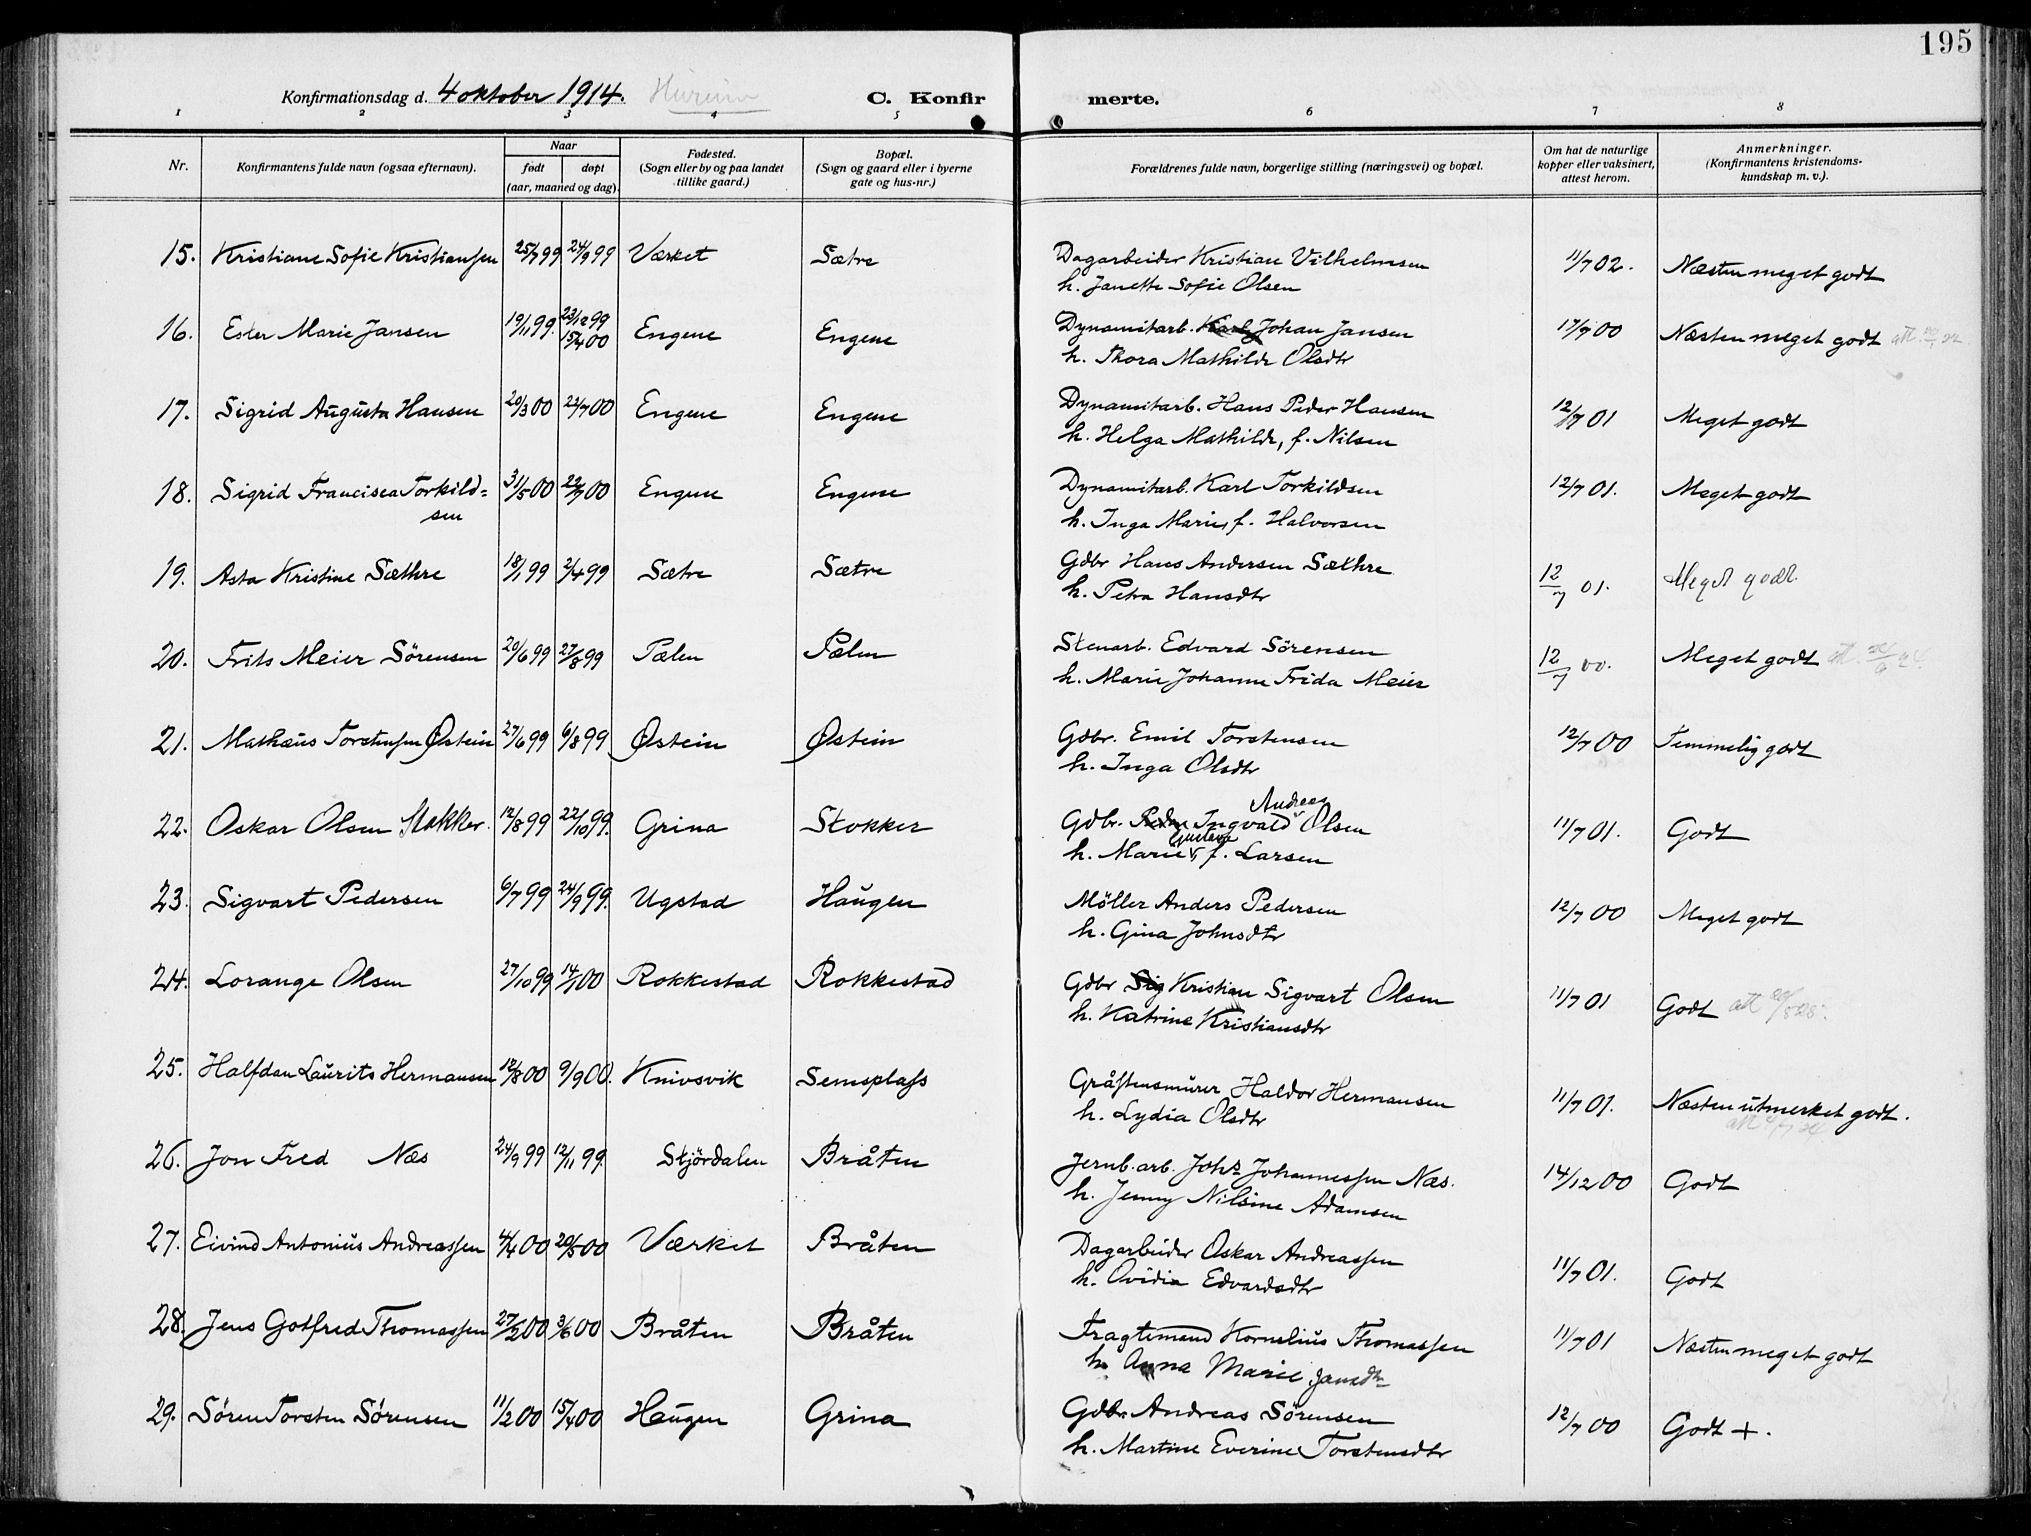 195
Konfirmationsdag d. 4 oktober 1914. Hurum C. Konfirmerte.
1 2 3 4 5 6 7 8
Nr. Konfirmantens fulde navn (ogsaa efternavn). Naar født døpt (aar, maaned og dag). Fødested. (Sogn eller by og paa landet tillike gaard.) Bopæl. (Sogn og gaard eller i byerne gate og hus-nr.) Forældrenes fulde navn, borgerlige stilling (næringsvei) og bopæl. Om hat de naturlige kopper eller vaksinert, attest herom. Anmerkninger. (Konfirmantens kristendoms-kundskap m. v.).
15. Kristiane Sofie Kristiansen 25/7 99 24/9 99 Værket Sætre Dagarbeider Kristian Vilhelmsen 11/7 02. Næsten meget godt
h. Janette Sofie Olsen
16. Ester Marie Jansen 19/11 99. 23/12 99 15/4 00 Engene Engene Dynamitarb. Karl Johan Jansen 17/7 00 Næsten meget godt
h. Thora Mathilde Olsdtr
17. Sigrid Augusta Hansen 20/3 00 22/7 00 Engene Engene Dynamitarb. Hans Peder Hansen 12/7 01 Meget godt
h. Helga Mathilde, f. Nilsen
18. Sigrid Francisca Torkild= 31/5 00 22/7 00 Engene Engene Dynamitarb. Karl Torkildsen 12/7 01. Meget godt
sen h. Inga Marie, f. Halvorsen
19. Asta Kristine Sæthre 18/1 99 2/4 99 Sætre Sætre Gdbr Hans Andersen Sæthre 12/7 01. Meget godt.
h. Petra Hansdtr
20. Frits Meier Sörensen 20/6 99 27/8 99 Pælen Pælen Stenarb. Edvard Sörensen 12/7 00. Meget godt
h. Marie Johanne Frida Meier
21. Mathæus Torstensen Østein 27/6 99 6/8 99 Østein Østein Gdbr. Emil Torstensen 12/7 00 Temmelig godt
h. Inga Olsdtr
22. Oskar Olsen Stokker. 12/8 99 22/10 99. Grina Stokker Gdbr. Peder Ingvald Andreas Olsen 11/7 01. Godt
h. Marie Gustava, f. Larsen
23. Sigvart Pedersen 6/7 99 24/9 99. Ugstad Haugen Möller Anders Pedersen 12/7 00 Meget godt
h. Gina Johnsdtr
24. Lorange Olsen 27/10 99 14/1 00 Rokkestad Rokkestad Gdbr Sig Kristian Sigvart Olsen 11/7 01 Godt
h. Katrine Kristiansdtr
25. Halfdan Laurits Hermansen 12/8 00 9/9 00. Knivsvik Semsplass Gråstensmurer Haldor Hermansen 11/7 01. Næsten utmerket godt.
h. Lydia Olsdtr
26. Jon Fred Næs 24/9 99 12/11 99. Stjördalen Bråten Jernb. arb. Johs Johannessen Næs. 14/12 00 Godt
h. Jenny Nilsine Adamsen
27. Eivind Antonius Andreassen 4/4 00 20/5 00 Værket Bråten Dagarbeider Oskar Andreassen 11/7 01. Godt
h. Ovidia Edvardsdtr
28. Jens Gotfred Thomassen 27/2 00 3/6 00 Bråten Bråten Fragtemand Kornelius Thomassen 11/7 01 Næsten meget godt
h. Anna Marie Jansdtr
29. Søren Torsten Sørensen 11/2 00 15/4 00 Haugen Grina Gdbr Andreas Sørensen 12/7 00 Godt +.
h. Martine Everine Torstensdtr